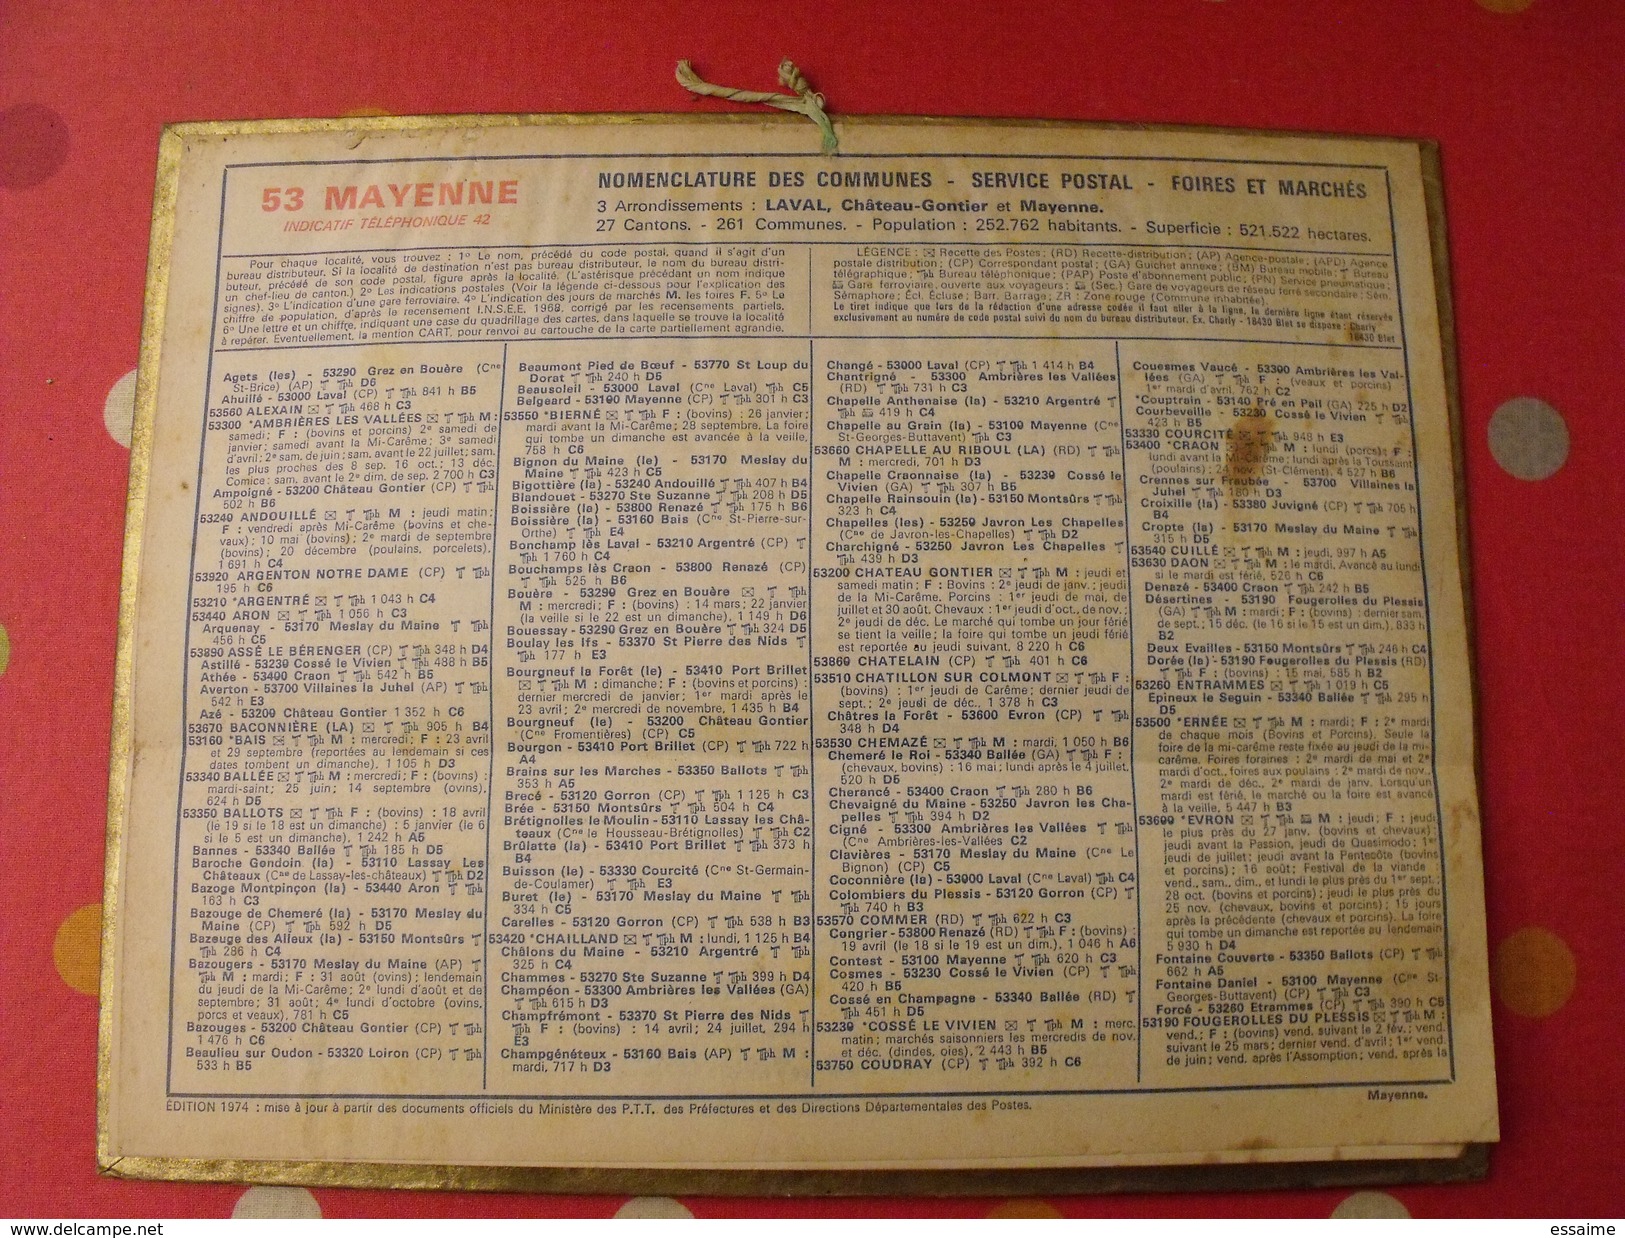 53 MAYENNE
INDICATIF TÉLÉPHONIQUE 42
NOMENCLATURE DES COMMUNES - SERVICE POSTAL - FOIRES ET MARCHÉS
3 Arrondissements : LAVAL, Château-Gontier et Mayenne.
27 Cantons. - 261 Communes. - Population : 252.762 habitants. - Superficie : 521.522 hectares.
Pour chaque localité, vous trouvez : 1º Le nom, précédé du code postal, quand il s'agit d'un
bureau distributeur. Si la localité de destination n'est pas bureau distributeur, le nom du bureau distri-
buteur, précédé de son code postal, figure après la localité. (L'astérisque précédant un nom indique
un chef-lieu de canton.) 2º Les indications postales (Voir la légende ci-dessous pour l'explication des
signes). 3º L'indication d'une gare ferroviaire. 4º L'indication des jours de marchés M. les foires F. 5º Le
chiffre de population, d'après le recensement I.N.S.E.E. 1968, corrigé par les recensements partiels.
6º Une lettre et un chiffre, indiquant une case du quadrillage des cartes, dans laquelle se trouve la localité
à repérer. Eventuellement, la mention CART, pour renvoi au cartouche de la carte partiellement agrandie.
LÉGENCE : ✉ Recette des Postes; (RD) Recette-distribution; (AP) Agence-postale; (APD) Agence
postale distribution; (CP) Correspondant postal; (GA) Guichet annexe; (BM) Bureau mobile; T Bureau
télégraphique; Tph Bureau téléphonique; (PAP) Poste d'abonnement public; (PN) Service pneumatique;
Gare ferroviaire, ouverte aux voyageurs; (Sec.) Gare de voyageurs de réseau ferré secondaire; Sém.
Sémaphore; Écl. Écluse; Barr. Barrage; ZR : Zone rouge (Commune inhabitée).
Le tiret indique que lors de la rédaction d'une adresse codée il faut aller à la ligne, la dernière ligne étant réservée
exclusivement au numéro de code postal suivi du nom du bureau distributeur. Ex. Charly - 18430 Blet se dispose : Charly
18430 Blet
Agets (les) - 53290 Grez en Bouère (Cne
St-Brice) (AP) T Tph D6
Ahuillé - 53000 Laval (CP) T Tph 841 h B5
53560 ALEXAIN ✉ T Tph 468 h C3
53300 *AMBRIÈRES LES VALLÉES ✉ T Tph M :
samedi; F : (bovins et porcins) 2e samedi de
janvier; samedi avant la Mi-Carême; 3e samedi
d'avril; 2e sam. de juin; sam. avant le 22 juillet; sam.
les plus proches des 8 sep. 16 oct.; 13 déc.
Comice: sam. avant le 2e dim. de sep. 2 700 h C3
Ampoigné - 53200 Château Gontier (CP) T Tph
502 h B6
53240 ANDOUILLÉ ✉ T Tph M : jeudi matin;
F : vendredi après Mi-Carême (bovins et che-
vaux); 10 mai (bovins); 2e mardi de septembre
(bovins); 20 décembre (poulains, porcelets),
1 691 h C4
53920 ARGENTON NOTRE DAME (CP) T Tph
195 h C6
53210 *ARGENTRÉ ✉ T Tph 1 043 h C4
53440 ARON ✉ T Tph 1 056 h C3
Arquenay - 53170 Meslay du Maine T Tph
456 h C5
53890 ASSÉ LE BÉRENGER (CP) T Tph 348 h D4
Astillé - 53230 Cossé le Vivien T Tph 488 h B5
Athée - 53400 Craon T Tph 542 h B5
Averton - 53700 Villaines la Juhel (AP) T Tph
542 h E3
Azé - 53200 Château Gontier 1 352 h C6
53670 BACONNIÈRE (LA) ✉ T Tph 905 h B4
53160 *BAIS ✉ T Tph M : mercredi; F : 23 avril
et 29 septembre (reportées au lendemain si ces
dates tombent un dimanche). 1 105 h D3
53340 BALLÉE ✉ T Tph M : mercredi; F : (bovins) :
mardi-saint; 25 juin; 14 septembre (ovins),
624 h D5
53350 BALLOTS ✉ T Tph F : (bovins) : 18 avril
(le 19 si le 18 est un dimanche) : 5 janvier (le 6
si le 5 est un dimanche), 1 242 h A5
Bannes - 53340 Ballée T Tph 185 h D5
Baroche Gondoin (la) - 53110 Lassay Les
Châteaux (Cne de Lassay-les-châteaux) T Tph D2
Bazoge Montpinçon (la) - 53440 Aron T Tph
163 h C3
Bazouge de Chemeré (la) - 53170 Meslay du
Maine (CP) T Tph 592 h D5
Bazouge des Alleux (la) - 53150 Montsûrs T
Tph 286 h C4
Bazougers - 53170 Meslay du Maine (AP) T
Tph M : mardi; F : 31 août (ovins); lendemain
du jeudi de la Mi-Carême; 2e lundi d'août et de
septembre; 31 août; 4e lundi d'octobre (ovins,
porcs et veaux), 781 h C5
Bazouges - 53200 Château Gontier (CP) T Tph
1 476 h C6
Beaulieu sur Oudon - 53320 Loiron (CP) T Tph
533 h B5
Beaumont Pied de Bœuf - 53770 St Loup du
Dorat T Tph 240 h D5
Beausoleil - 53000 Laval (Cne Laval) Tph C5
Belgeard - 53100 Mayenne (CP) T Tph 301 h C3
53550 *BIERNÉ ✉ T Tph F : (bovins) : 26 janvier;
mardi avant la Mi-Carême; 28 septembre. La foire
qui tombe un dimanche est avancée à la veille,
758 h C6
Bignon du Maine (le) - 53170 Meslay du
Maine T Tph 423 h C5
Bigottière (la) - 53240 Andouillé T Tph 407 h B4
Blandouet - 53270 Ste Suzanne T Tph 208 h D5
Boissière (la) - 53800 Renazé T Tph 175 h B6
Boissière (la) - 53160 Bais (Cne St-Pierre-sur-
Orthe) T Tph E4
Bonchamp lès Laval - 53210 Argentré (CP) T
Tph 1 760 h C4
Bouchamps lès Craon - 53800 Renazé (CP)
T Tph 525 h B6
Bouère - 53290 Grez en Bouère ✉ T Tph
M : mercredi; F : (bovins) : 14 mars; 22 janvier
(la veille si le 22 est un dimanche), 1 149 h D6
Bouessay - 53290 Grez en Bouère T Tph 324 D5
Boulay les Ifs - 53370 St Pierre des Nids T
Tph 177 h E3
Bourgneuf la Forêt (le) - 53410 Port Brillet
✉ T Tph M : dimanche; F : (bovins et porcins) :
dernier mercredi de janvier; 1er mardi après le
23 avril; 2e mercredi de novembre, 1 435 h B4
Bourgneuf (le) - 53200 Château Gontier
(Cne Fromentières) (CP) C5
Bourgon - 53410 Port Brillet (CP) T Tph 722 h
A4
Brains sur les Marches - 53350 Ballots T Tph
353 h A5
Brecé - 53120 Gorron (CP) T Tph 1 125 h C3
Brée - 53150 Montsûrs T Tph 504 h C4
Brétignolles le Moulin - 53110 Lassay les Châ-
teaux (Cne le Housseau-Brétignolles) T Tph C2
Brûlatte (la) - 53410 Port Brillet T Tph 373 h
B4
Buisson (le) - 53330 Courcité (Cne St-Germain-
de-Coulamer) T Tph E3
Buret (le) - 53170 Meslay du Maine T Tph
334 h C5
Carelles - 53120 Gorron (CP) T Tph 538 h B3
53420 *CHAILLAND ✉ T Tph M : lundi, 1 125 h B4
Châlons du Maine - 53210 Argentré T Tph
325 h C4
Chammes - 53270 Ste Suzanne T Tph 399 h D4
Champéon - 53300 Ambrières les Vallées (GA)
T Tph 615 h D3
Champfrémont - 53370 St Pierre des Nids T
Tph F : (bovins) : 14 avril; 24 juillet, 294 h
E3
Champgénéteux - 53160 Bais (AP) T Tph M :
mardi, 717 h D3
Changé - 53000 Laval (CP) T Tph 1 414 h B4
Chantrigné - 53300 Ambrières les Vallées
(RD) T Tph 731 h C3
Chapelle Anthenaise (la) - 53210 Argentré T
Tph 419 h C4
Chapelle au Grain (la) - 53100 Mayenne (Cne
St-Georges-Buttavent) Tph C3
53660 CHAPELLE AU RIBOUL (LA) (RD) T Tph
M : mercredi, 701 h D3
Chapelle Craonnaise (la) - 53230 Cossé le
Vivien (GA) T Tph 307 h B5
Chapelle Rainsouin (la) - 53150 Montsûrs T Tph
323 h C4
Chapelles (les) - 53250 Javron Les Chapelles
(Cne de Javron-les-Chapelles) T Tph D2
Charchigné - 53250 Javron Les Chapelles T
Tph 439 h D3
53200 CHATEAU GONTIER ✉ T Tph M : jeudi et
samedi matin; F : Bovins : 2e jeudi de janv.; jeudi
de la Mi-Carême. Porcins : 1er jeudi de mai, de
juillet et 30 août. Chevaux : 1er jeudi d'oct., de nov.;
2e jeudi de déc. Le marché qui tombe un jour férié
se tient la veille; la foire qui tombe un jeudi férié
est reportée au jeudi suivant, 8 220 h C6
53860 CHATELAIN (CP) T Tph 401 h C6
53510 CHATILLON SUR COLMONT ✉ T Tph F :
(bovins) : 1er jeudi de Carême; dernier jeudi de
sept.; 2e jeudi de déc., 1 378 h C3
Châtres la Forêt - 53600 Evron (CP) T Tph
348 h D4
53530 CHEMAZÉ ✉ T Tph M : mardi, 1 050 h B6
Chemeré le Roi - 53340 Ballée (GA) T Tph F :
(chevaux, bovins) : 16 mai; lundi après le 4 juillet,
520 h D5
Cherancé - 53400 Craon T Tph 280 h B6
Chevaigné du Maine - 53250 Javron les Cha-
pelles T Tph 394 h D2
Cigné - 53300 Ambrières les Vallées T Tph
(Cne Ambrières-les-Vallées C2
Clavières - 53170 Meslay du Maine (Cne Le
Bignon) (CP) C5
Coconnière (la) - 53000 Laval (Cne Laval) Tph C4
Colombiers du Plessis - 53120 Gorron (CP) T
Tph 740 h B3
53570 COMMER (RD) T Tph 622 h C3
Congrier - 53800 Renazé (RD) T Tph F : (bovins) :
19 avril (le 18 si le 19 est un dim.), 1 046 h A6
Contest - 53100 Mayenne T Tph 620 h C3
Cosmes - 53230 Cossé le Vivien (CP) T Tph
420 h B5
Cossé en Champagne - 53340 Ballée (RD) T
Tph 451 h D5
53230 *COSSÉ LE VIVIEN ✉ T Tph M : merc.
matin; marchés saisonniers les mercredis de nov.
et déc. (dindes, oies), 2 443 h B5
53750 COUDRAY (CP) T Tph 392 h C6
Couesmes Vaucé - 53300 Ambrières les Val-
lées (GA) T Tph F : (veaux et porcins)
1er mardi d'avril, 762 h C2
*Couptrain - 53140 Pré en Pail (GA) 225 h D2
Courbeveille - 53230 Cossé le Vivien T Tph
423 h B5
53330 COURCITÉ ✉ T Tph 948 h E3
53400 *CRAON ✉ T Tph M : lundi (porcs); F :
lundi avant la Mi-Carême; lundi après la Toussaint
(poulains); 24 nov. (St-Clément), 4 527 h B6
Crennes sur Fraubée - 53700 Villaines la
Juhel T Tph 180 h D3
Croixille (la) - 53380 Juvigné (CP) T Tph 705 h
B4
Cropte (la) - 53170 Meslay du Maine T Tph
315 h D5
53540 CUILLÉ ✉ T Tph M : jeudi, 997 h A5
53630 DAON ✉ T Tph M : le mardi. Avancé au lundi
si le mardi est férié, 526 h C6
Denazé - 53400 Craon T Tph 242 h B5
Désertines - 53190 Fougerolles du Plessis
(GA) T Tph M : mardi; F : (bovins) : dernier sam.
de sept.; 15 déc. (le 16 si le 15 est un dim.), 833 h
B2
Deux Evailles - 53150 Montsûrs T Tph 246 h C4
Dorée (la) - 53190 Fougerolles du Plessis (RD)
T Tph F : (bovins) : 15 mai, 585 h B2
53260 ENTRAMMES ✉ T Tph 1 019 h C5
Epineux le Seguin - 53340 Ballée T Tph 295 h
D5
53500 *ERNÉE ✉ T Tph M : mardi; F : 2e mardi
de chaque mois (Bovins et Porcins). Seule la
foire de la mi-carême reste fixée au jeudi de la mi-
carême. Foires foraines : 2e mardi de mai et 2e
mardi d'oct., foires aux poulains : 2e mardi de nov.,
2e mardi de déc., 2e mardi de janv. Lorsqu'un
mardi est férié, le marché ou la foire est avancé
à la veille, 5 447 h B3
53600 *EVRON ✉ T Tph M : jeudi; F : jeudi
le plus près du 27 janv. (bovins et chevaux);
jeudi avant la Passion, jeudi de Quasimodo; 1er
jeudi de juillet; jeudi avant la Pentecôte (bovins
et porcins); 16 août; Festival de la viande :
vend., sam., dim., et lundi le plus près du 1er sept.;
28 oct. (bovins et porcins); jeudi le plus près du
25 nov. (chevaux, bovins et porcins); 15 jours
après la précédente (chevaux et porcins). La foire
qui tombe un dimanche est reportée au lendemain
5 930 h D4
Fontaine Couverte - 53350 Ballots (CP) T Tph
662 h A5
Fontaine Daniel - 53100 Mayenne (Cne St-
Georges-Buttavent) (CP) T Tph C3
Forcé - 53260 Etrammes (CP) T Tph 390 h C5
53190 FOUGEROLLES DU PLESSIS ✉ T Tph M :
vend.; F : (bovins) vend. suivant le 2 fév.; vend.
suivant le 25 mars; dernier vend. d'avril; 1er vend.
de juin; vend. après l'Assomption; vend. après la
Mayenne.
ÉDITION 1974 : mise à jour à partir des documents officiels du Ministère des P.T.T. des Préfectures et des Directions Départementales des Postes.
delcampe.net
essaime